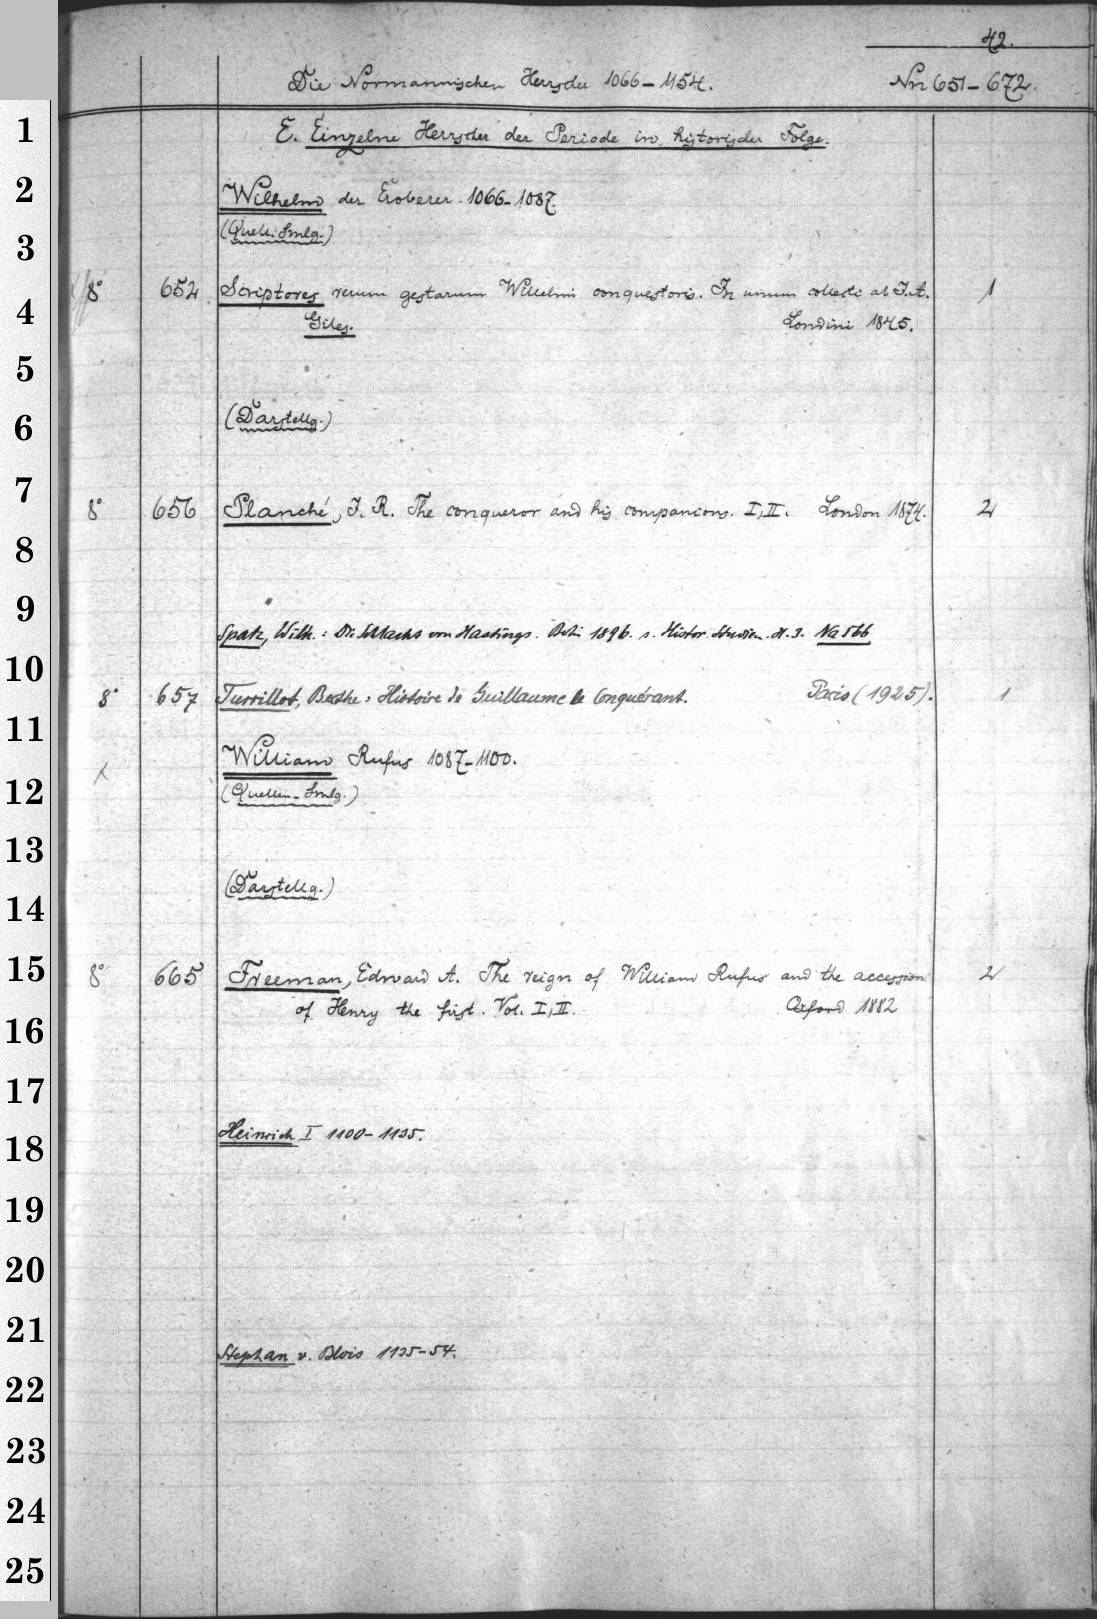 42.
Die Normannischen Herrscher 1066–1154. Nn 651–672.
E. Einzelne Herrscher der Periode in historischer Folge.
Wilhelm der Eroberer. 1066–1087.
(Quell. Smlg.)
8° 652 Scriptores rerum gestarum Willelmi conquestoris. In unum collecti ab I. A. 1
Giles. Londini 1845.
(Darstellg.)
8° 656 Planché, J. R. The conqueror and his companions. I, II. London 1874. 2
Spatz, Wilh.: Die Schlacht von Hastings. Berlin 1896. s. Histor. Studien. H. 3. Na 566
8° 657 Turrillot, Berthe: Histoire de Guillaume le Conquérant. Paris (1925). 1
William Rufus 1087–1100.
(Quellen-Smlg.)
(Darstellg.)
8° 665 Freeman, Edward A. The reign of William Rufus and the accession 2
of Henry the first. Vol. I, II. Oxford 1882
Heinrich I 1100–1135.
Stephan v. Blois 1135–54.
1
2
3
4
5
6
7
8
9
10
11
12
13
14
15
16
17
18
19
20
21
22
23
24
25